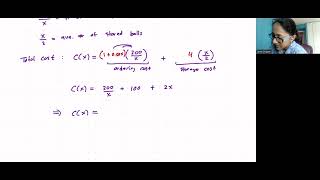 x
x/2 = ave. # of stored balls
Total cost : C(x) = (1+0.5x)(200/x) + 4(x/2)
ordering cost storage cost
C(x) = 200/x + 100 + 2x
⇒ C(x) =